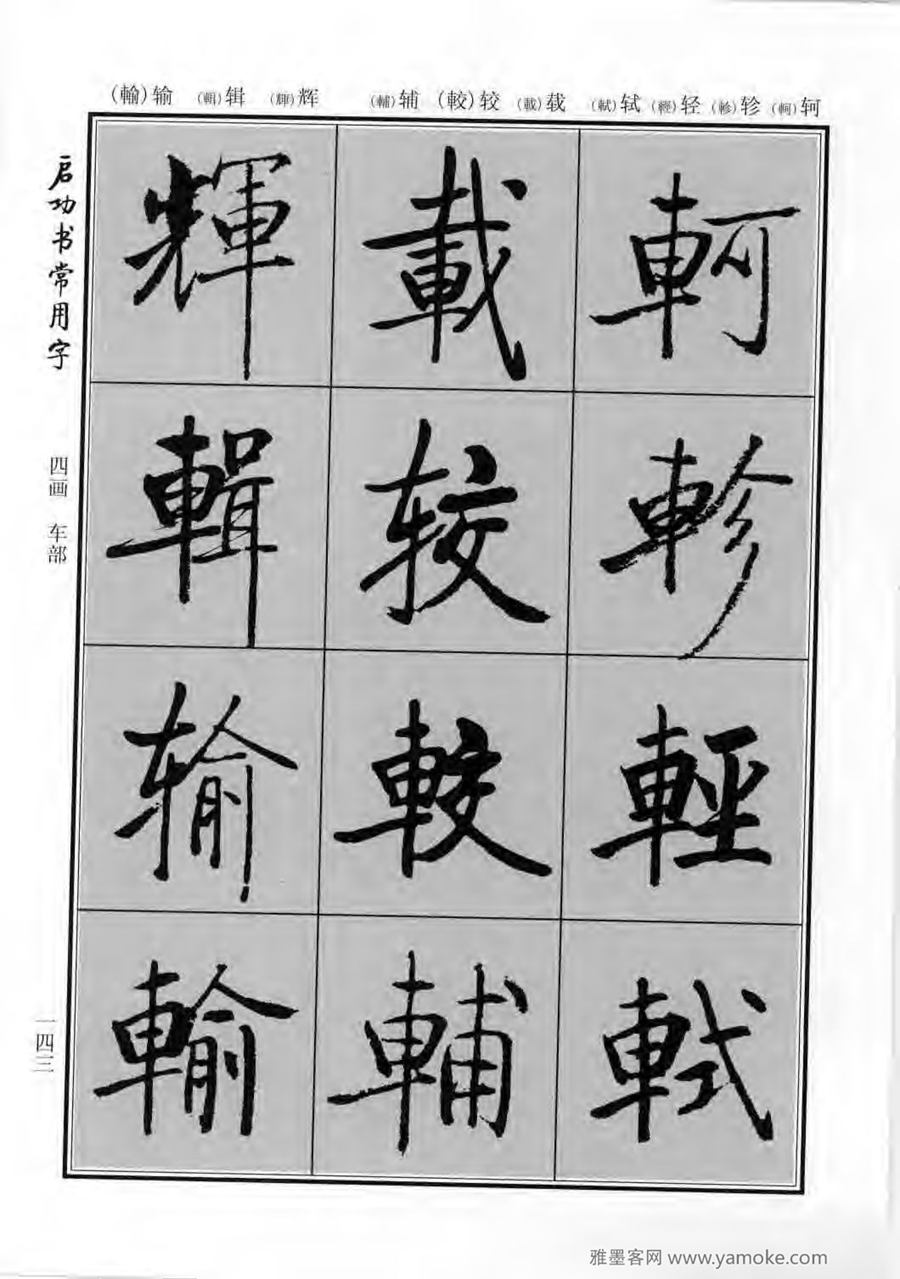 (輸)输 (輯)辑 (輝)辉 (輔)辅 (較)较 (載)载 (軾)轼 (輕)轻 (軫)轸 (軻)轲
启功书常用字
四画 车部
一四三
軻
軫
輕
軾
載
较
較
輔
輝
輯
输
輸
雅墨客网 www.yamoke.com